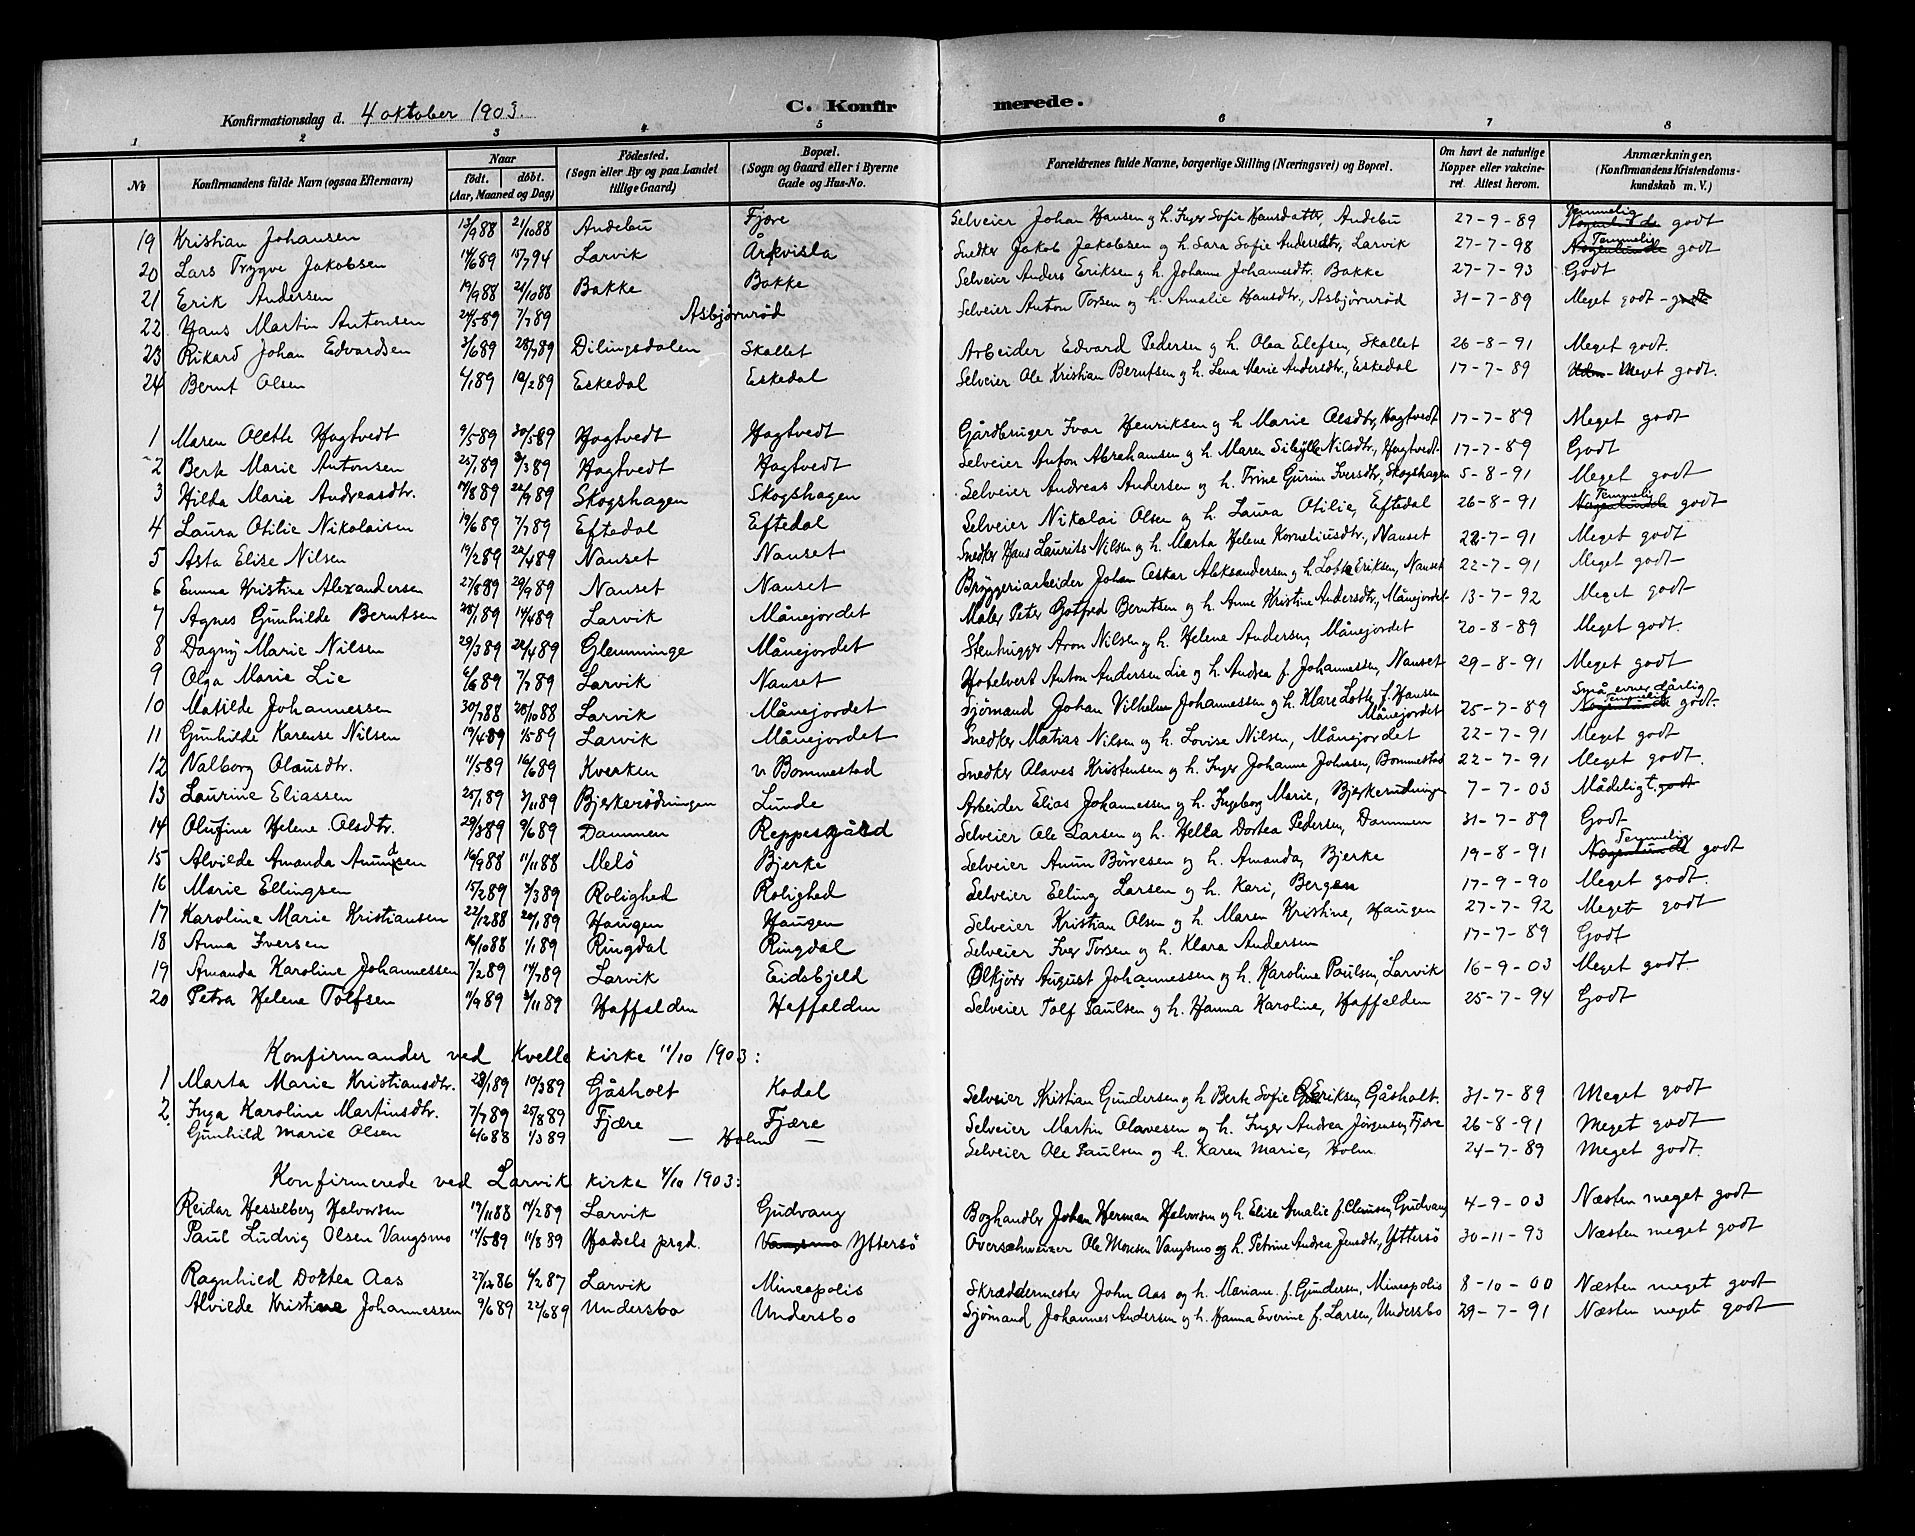 Konfirmationsdag d. 4 oktober 1903.
C. Konfirmerede.
1 2 3 4 5 6 7 8
No
Konfirmandens fulde Navn (ogsaa Efternavn)
Naar
födt. döbt.
(Aar, Maaned og Dag)
Födested.
(Sogn eller By og paa Landet
tillige Gaard)
Bopæl.
(Sogn og Gaard eller i Byerne
Gade og Hus-No.
Forældrenes fulde Navne, borgerlige Stilling (Næringsvei) og Bopæl.
Om havt de naturlige
Kopper eller vakcine-
ret. Attest herom.
Anmærkninger.
(Konfirmandens Kristendoms-
kundskab m. V.)
19 Kristian Johansen 13/9 88 21/10 88 Andebu Fjære Selveier Johan Hansen og h. Inger Sofie Hansdatter, Andebu 27-9-89 Temmelig godt
20 Lars Trygve Jakobsen 14/6 89 15/7 94 Larvik Årkvisla Snedker Jakob Jakobsen og h. Sara Sofie Andersdtr, Larvik 27-7-98 Temmelig godt
21 Erik Andersen 19/9 88 21/10 88 Bakke Bakke Selveier Anders Eriksen og h. Johanne Johannesdtr. Bakke 27-7-93 Godt
22 Hans Martin Antonsen 24/5 89 7/7 89 Asbjørnrød Selveier Anton Torsen og h. Amalie Hansdtr., Asbjörnröd 31-7-89 Meget godt - godt
23 Rikard Johan Edvardsen 3/6 89 28/7 89 Dilingsdalen Skallet Arbeider Edvard Pedersen og h. Olea Elefsen, Skallet 26-8-91 Meget godt.
24 Bernt Olsen 4/1 89 10/2 89 Eskedal Eskedal Selveier Ole Kristian Berntsen og h. Lena Marie Andersdtr., Eskedal 17-7-89 Udm - Meget godt.
1 Maren Olette Hagtvedt 9/5 89 30/5 89 Hagtvedt Hagtvedt Gårdbruger Ivar Henriksen og h. Marie Olsdtr, Hagtvedt 17-7-89 Meget godt
2 Berte Marie Antonsen 25/1 89 3/3 89 Hagtvedt Hagtvedt Selveier Anton Abrahamsen og h. Maren Sibylle Nilsdtr, Hagtvedt 17-7-89 Godt
3 Hilda Marie Andreasdtr. 14/8 89 22/9 89 Skogshagen Skogshagen Selveier Andreas Andersen og h. Trine Gurine Iversdtr, Skogshagen 5-8-91 Meget godt
4 Laura Otilie Nikolaisen 19/6 89 7/7 89 Eftedal Eftedal Selveier Nikolai Olsen og h. Laura Otilie, Eftedal 26-8-91 Temmelig godt
5 Asta Elise Nilsen 19/2 89 22/4 89 Nanset Nanset Snedker Hans Laurits Nilsen og h. Marta Helene Korneliusdtr, Nanset 22-7-91 Meget godt
6 Emma Kristine Alexandersen 27/8 89 29/9 89 Nanset Nanset Bryggeriarbeider Johan Oskar Aleksandersen og h. Lotte Eriksen, Nanset 22-7-91 Meget godt
7 Agnes Gunhilde Berntsen 28/1 89 14/4 89 Larvik Månejordet Maler Peter Gotfred Berntsen og h. Anne Kristine Andersdtr., Månejordet 13-7-92 Meget godt
8 Dagny Marie Nilsen 29/3 89 22/4 89 Glemminge Månejordet Stenhugger Aron Nilsen og h. Helene Andersen, Månejordet 20-8-89 Meget godt.
9 Olga Marie Lie 6/6 89 7/7 89 Larvik Nanset Hotelvert Anton Andersen Lie og h. Andrea f. Johannessen, Nanset 29-8-91 Meget godt
10 Matilde Johannessen 30/7 88 28/10 88 Larvik Månejordet Sjömand Johan Vilhelm Johannessen og h. Klare Lotte f. Hansen Månejordet 25-7-89 Små evner Dårlig Temmelig godt.
11 Gunhilde Karense Nilsen 19/4 89 1/5 89 Larvik Månejordet Snedker Matias Nilsen og h. Lovise Nilsen, Månejordet 22-7-91 Meget godt
12 Valborg Olausdtr. 11/5 89 16/6 89 Kverken v. Bommestad Snedker Olaves Kristensen og h. Inger Johanne Johnsen, Bommestad 22-7-91 Meget godt.
13 Laurine Eliassen 25/1 89 3/11 89 Bjerkerödningen Lunde Arbeider Elias Johannessen og h. Ingeborg Marie, Bjerkerudningen 7-7-03 Mådeligt. godt
14 Olufine Helene Olsdtr. 29/3 89 9/6 89 Dammen Reppesgård Selveier Ole Larsen og h. Hella Dortea Pedersen, Dammen 31-7-89 Godt
15 Alvilde Amanda Anundsen 16/9 88 11/11 88 Melö Bjerke Selveier Anun Börresen og h. Amanda, Bjerke 19-8-91 Temmelig godt
16 Marie Ellingsen 15/2 89 3/3 89 Rolighed Rolighed Selveier Elling Larsen og h. Kari, Bergen 17-9-90 Meget godt.
17 Karoline Marie Kristiansen 22/12 88 20/1 89 Haugen Haugen Selveier Kristian Olsen og h. Maren Kristine, Haugen 27-7-92 Meget godt
18 Anna Iversen 16/10 88 1/1 89 Ringdal Ringdal Selveier Iver Torsen og h. Klara Andersen 17-7-89 Godt
19 Amanda Karoline Johannessen 7/2 89 14/7 89 Larvik Eidsbjeld Ölkjörer August Johannessen og h. Karoline Paulsen, Larvik 16-9-03 Meget godt.
20 Petra Helene Tolfsen 1/9 89 3/11 89 Haffelden Haffelden Selveier Tolf Paulsen og h. Hanna Karoline, Haffelden 25-7-94 Godt
Konfirmander ved Kvelle kirke 11/10 1903:
1 Marta Marie Kristiansdtr. 28/1 89 10/3 89 Gåsholt Kodal Selveier Kristian Gundersen og h Berte Sofie Eriksen, Gåsholt. 31-7-89 Meget godt
2 Inga Karoline Martinsdtr. 7/7 89 25/8 89 Fjære Fjære Selveier Martin Olavesen og h. Inger Andrea Jörgensen, Fjære 26-8-91 Meget godt
Gunhild Marie Olsen 6/6 88 1/3 89 — Holm — Selveier Ole Paulsen og h. Karen Marie, Holm. 24-7-89 Meget godt.
Konfirmerede ved Larvik kirke 4/10 1903:
Reidar Hesselberg Halvorsen 19/11 88 17/2 89 Larvik Gudvang Boghandler Johan Herman Halvorsen og h. Elise Amalie f. Clausen, Gudvang 4-9-03 Næsten meget godt
Paul Ludvig Olsen Vangsmo 14/5 89 11/8 89 Hadels prgd. Vangsmo Yttersö Oversehweizer Ole Monsen Vangsmo og h. Petrine Andrea Jensdtr, Yttersö 30-11-93 Næsten meget godt
Ragnhild Dortea Aas 27/12 86 6/2 87 Larvik Mineapolis Skræddermester John Aas og h. Mariane. f. Gundersen, Mineapolis 8-10-00 Næsten meget godt
Alvilde Kristine Johannessen 9/6 89 22/6 89 Undersbo Undersbo Sjömand Johannes Andersen og h. Hanna Everine f. Larsen, Undersbo 29-7-91 Næsten meget godt